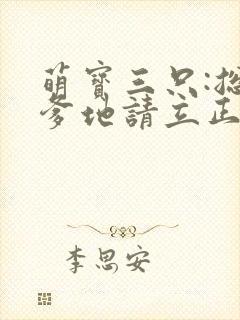 萌寶三只:
爹地請立正
李思安